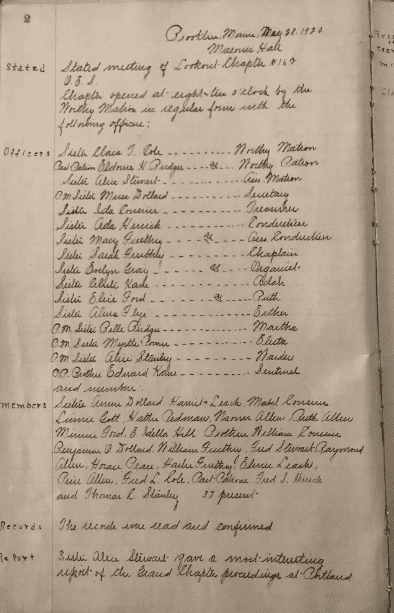 2
Brooklin, Maine, May 28, 1920
Masonic Hall
Stated Stated meeting of Lookout Chapter #162
O.E.S.
Chapter opened at eight-ten o'clock by the
Worthy Matron in regular form with the
following officers:
Officers Sister Clara T. Cole Worthy Matron
Past Patron H. Bridges Worthy Patron
Sister Alice Stewart Ass. Matron
P.M. Sister Dollard Secretary
Sister Ida Cousins Treasurer
Sister Ada Herrick Conductress
Sister Mary Ass Conductress
Sister Sarah Chaplain
Sister Evelyn Gray Organist
Sister Kane Adah
Sister Elsie Ford Ruth
Sister Alma Flye Esther
P.M. Sister Belle Bridges Martha
P.M. Sister Myrtle Electa
P.M. Sister Alice Stanley Warder
P.P. Brother Edward Kane Sentinel
and members.
Members Sisters Annie Dollard, Leach, Mabel Cousins
Linnie Gott, Hattie Redman, Naomi Allen, Ruth Allen
Minnie Ford, E. Idella Hill Brothers William Cousins
Benjamin O. Dollard, William Fred Stewart, Raymond
Allen, Horace Leach,
Allen, Fred L. Cole, Past Patrons Fred S. Herrick
and Thomas R. Stanley 37 present
Records The records were read and confirmed.
Report Sister Alice Stewart gave a most interesting
report of the Grand Chapter proceedings at Portland